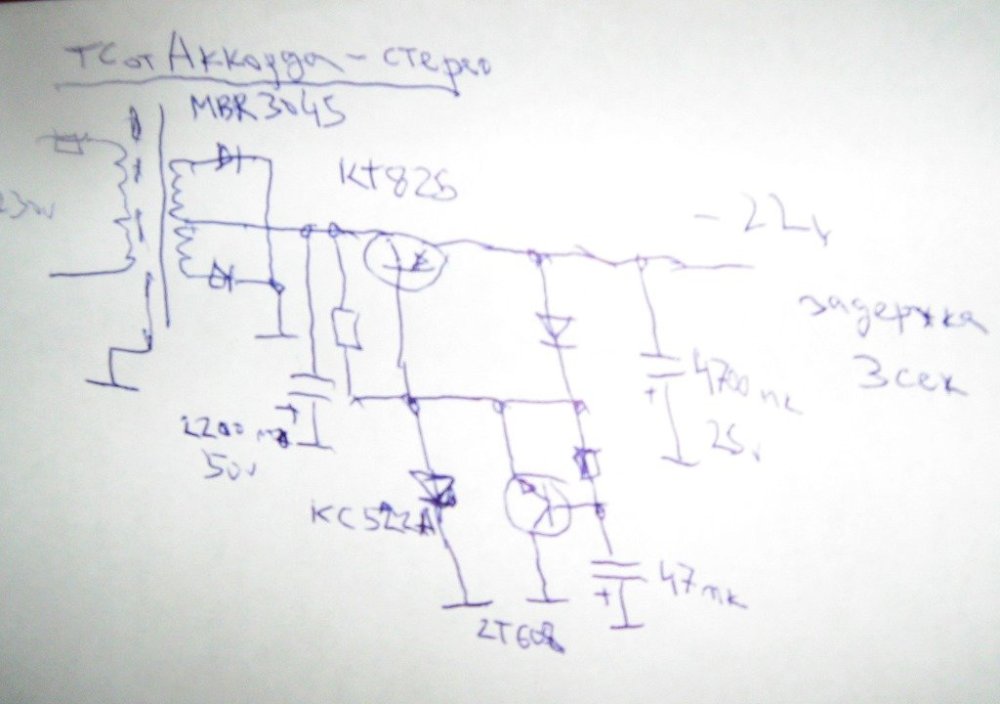 ТС от Аккорда – стерео
MBR3045
КТ825
230v
-22v
задержка
3 сек
4700 мк
25v
2200 мк
50v
КС522А
47 мк
2Т608